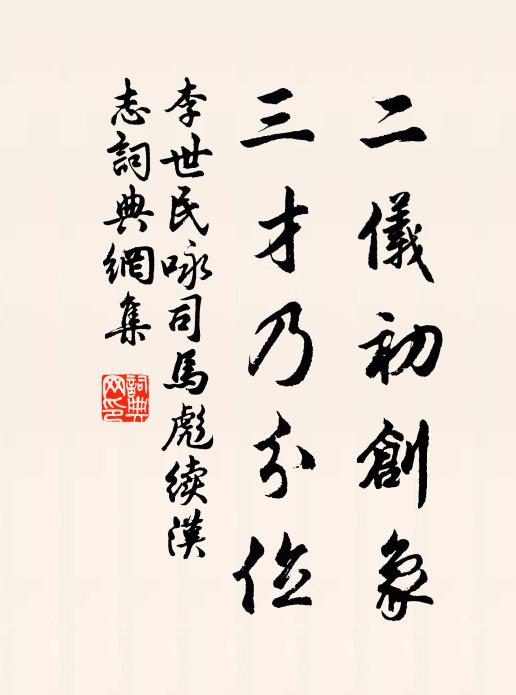 二儀初創象
三才乃分位
李世民咏司馬彪續漢
志詞典網集
詞典網印